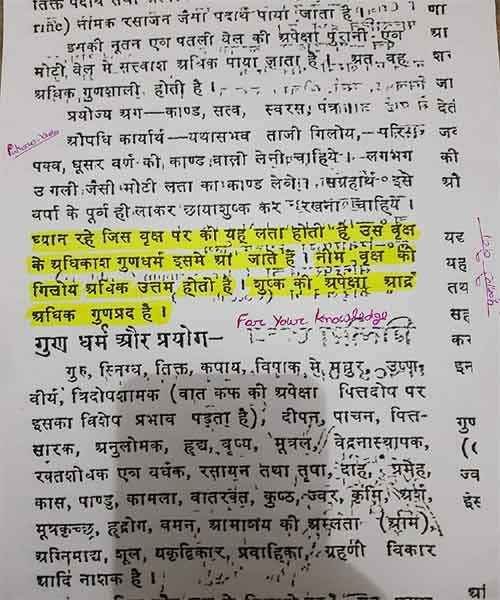 तिक्त पदार्थ तथा
rine) नामक रसाजन जैसा पदार्थ पाया जाता है ।
इसकी नूतन एव पतली वेल की अपेक्षा पुरानी एव
मोटी वेल मे सत्त्वाश अधिक पाया जाता है । अत. वह
अधिक गुणशाली होती है ।
प्रयोज्य अग—काण्ड, सत्व, स्वरस, पत्र
औषधि कार्यार्थ—यथासभव ताजी गिलोय,—परि
पक्व, धूसर वर्ण की, काण्ड वाली लेनी चाहिये । लगभग
उ गली जैसी मोटी लता का काण्ड लेवे । सग्रहार्थ इसे
वर्षा के पूर्व ही लाकर छायाशुष्क कर रखना चाहिये ।
ध्यान रहे जिस वृक्ष पर की यह लता होती है उस वृक्ष
के अधिकाश गुणधर्म इसमे आ जाते है । नीम वृक्ष की
गिलोय अधिक उत्तम होती है । शुष्क की अपेक्षा आर्द्र
अधिक गुणप्रद है ।
For Your Knowledge
गुण धर्म और प्रयोग—
गुरु, स्निग्ध, तिक्त, कषाय, विपाक मे मधुर, उष्ण
वीर्य, त्रिदोपशामक (वात कफ की अपेक्षा पित्तदोप पर
इसका विशेप प्रभाव पड़ता है); दीपन, पाचन, पित्त-
सारक, अनुलोमक, हृद्य, वृष्य, मूत्रल, वेदनास्थापक,
रक्तशोधक एव वर्धक, रसायन तथा तृपा, दाह, प्रमेह,
कास, पाण्डु, कामला, वातरक्त, कुष्ठ, ज्वर, कृमि, अर्श,
मूत्रकृच्छ, हृद्रोग, वमन, आमाशय की अम्लता
अग्निमाद्य, शूल, यकृद्विकार, प्रवाहिका, ग्रहणी विकार
आदि नाशक है ।
णा
श्रा
शन
जा
देत
जव
की
औ
यद्य
यह
तथ
सह
कर
इन
गुण
ज्व
इस